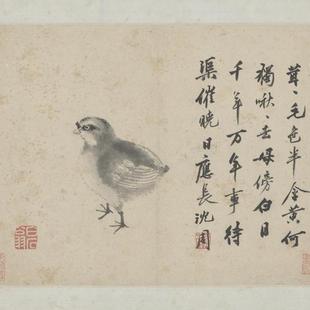 茸〻毛色半含黄何
獨啾〻去母傍白日
千年万年事待
渠催曉日應長沈
周